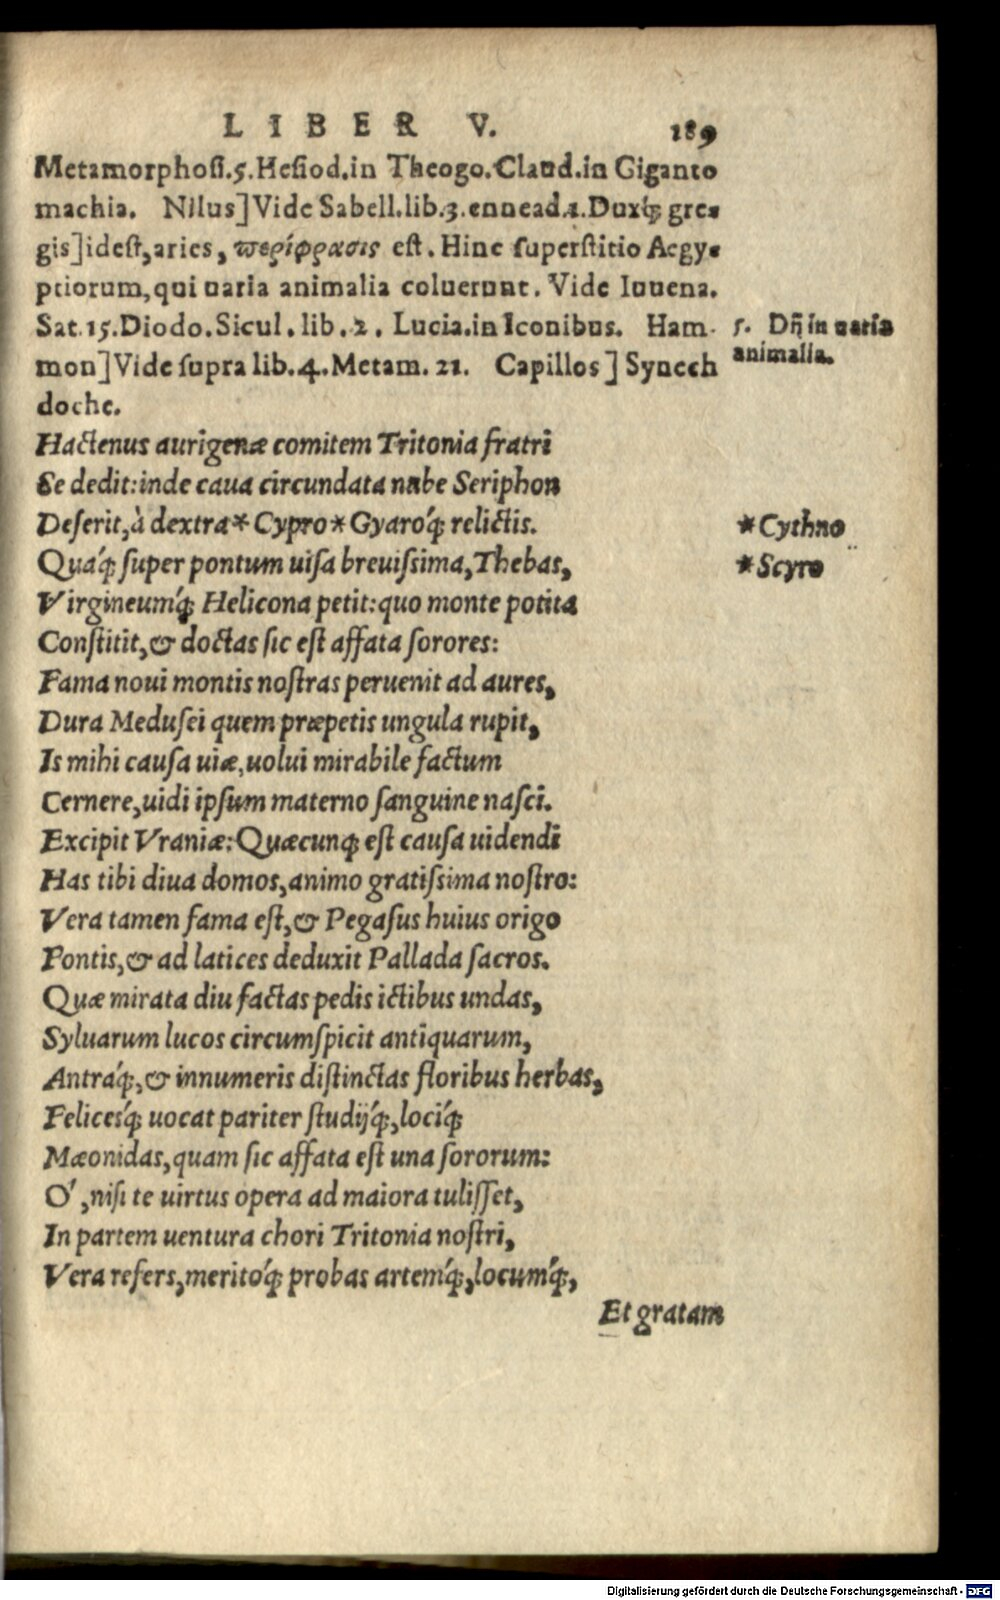 LIBER V. 189
Metamorphoſi.5.Heſiod.in Theogo.Claud.in Giganto
machia. Nilus]Vide Sabell.lib.3.ennead.1.Duxq́; gre-
gis]ideſt,aries, περίφρασις eſt. Hinc ſuperſtitio Aegy-
ptiorum,qui uaria animalia coluerunt. Vide Iuuena.
Sat.15.Diodo.Sicul.lib.2. Lucia.in Iconibus. Ham-
mon]Vide ſupra lib.4.Metam.21. Capillos] Synech
doche.
5. Dĩj in uaria
animalia.
Hactenus aurigenæ comitem Tritonia fratri
Se dedit:inde caua circundata nube Seriphon
Deſerit,à dextra*Cypro*Gyaroq́; relictis.
*Cythno
Quaq́; ſuper pontum uiſa breuiſsima,Thebas,
*Scyro
Virgineumq́; Helicona petit:quo monte potita
Conſtitit,& doctas ſic eſt affata ſorores:
Fama noui montis noſtras peruenit ad aures,
Dura Meduſei quem præpetis ungula rupit,
Is mihi cauſa uiæ,uolui mirabile factum
Cernere,uidi ipſum materno ſanguine naſci.
Excipit Vraniæ:Quæcunq; eſt cauſa uidendi
Has tibi diua domos,animo gratiſsima noſtro:
Vera tamen fama eſt,& Pegaſus huius origo
Fontis,& ad latices deduxit Pallada ſacros.
Quæ mirata diu factas pedis ictibus undas,
Syluarum lucos circumſpicit antiquarum,
Antraq́;,& innumeris diſtinctas floribus herbas,
Felicesq́; uocat pariter ſtudijq́;,lociq́;
Mæonidas,quam ſic affata eſt una ſororum:
O',niſi te uirtus opera ad maiora tuliſſet,
In partem uentura chori Tritonia noſtri,
Vera refers,meritoq́; probas artemq́;,locumq́;,
Et gratam
Digitalisierung gefördert durch die Deutsche Forschungsgemeinschaft - DFG